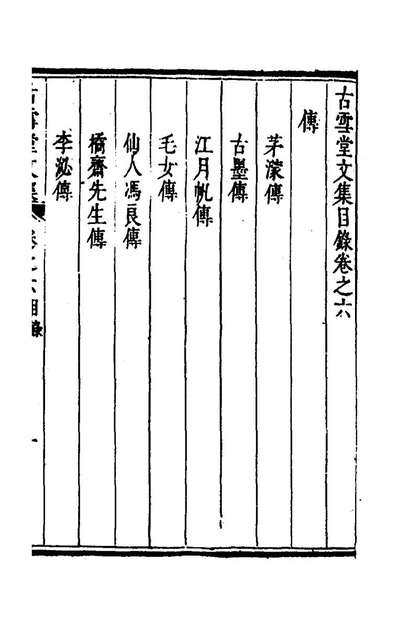 古雲堂文集目錄卷之六
傳
茅濛傳
古墨傳
江月帆傳
毛女傳
仙人馮良傳
橋齋先生傳
李泌傳
古雲堂文集 卷之六目錄 一